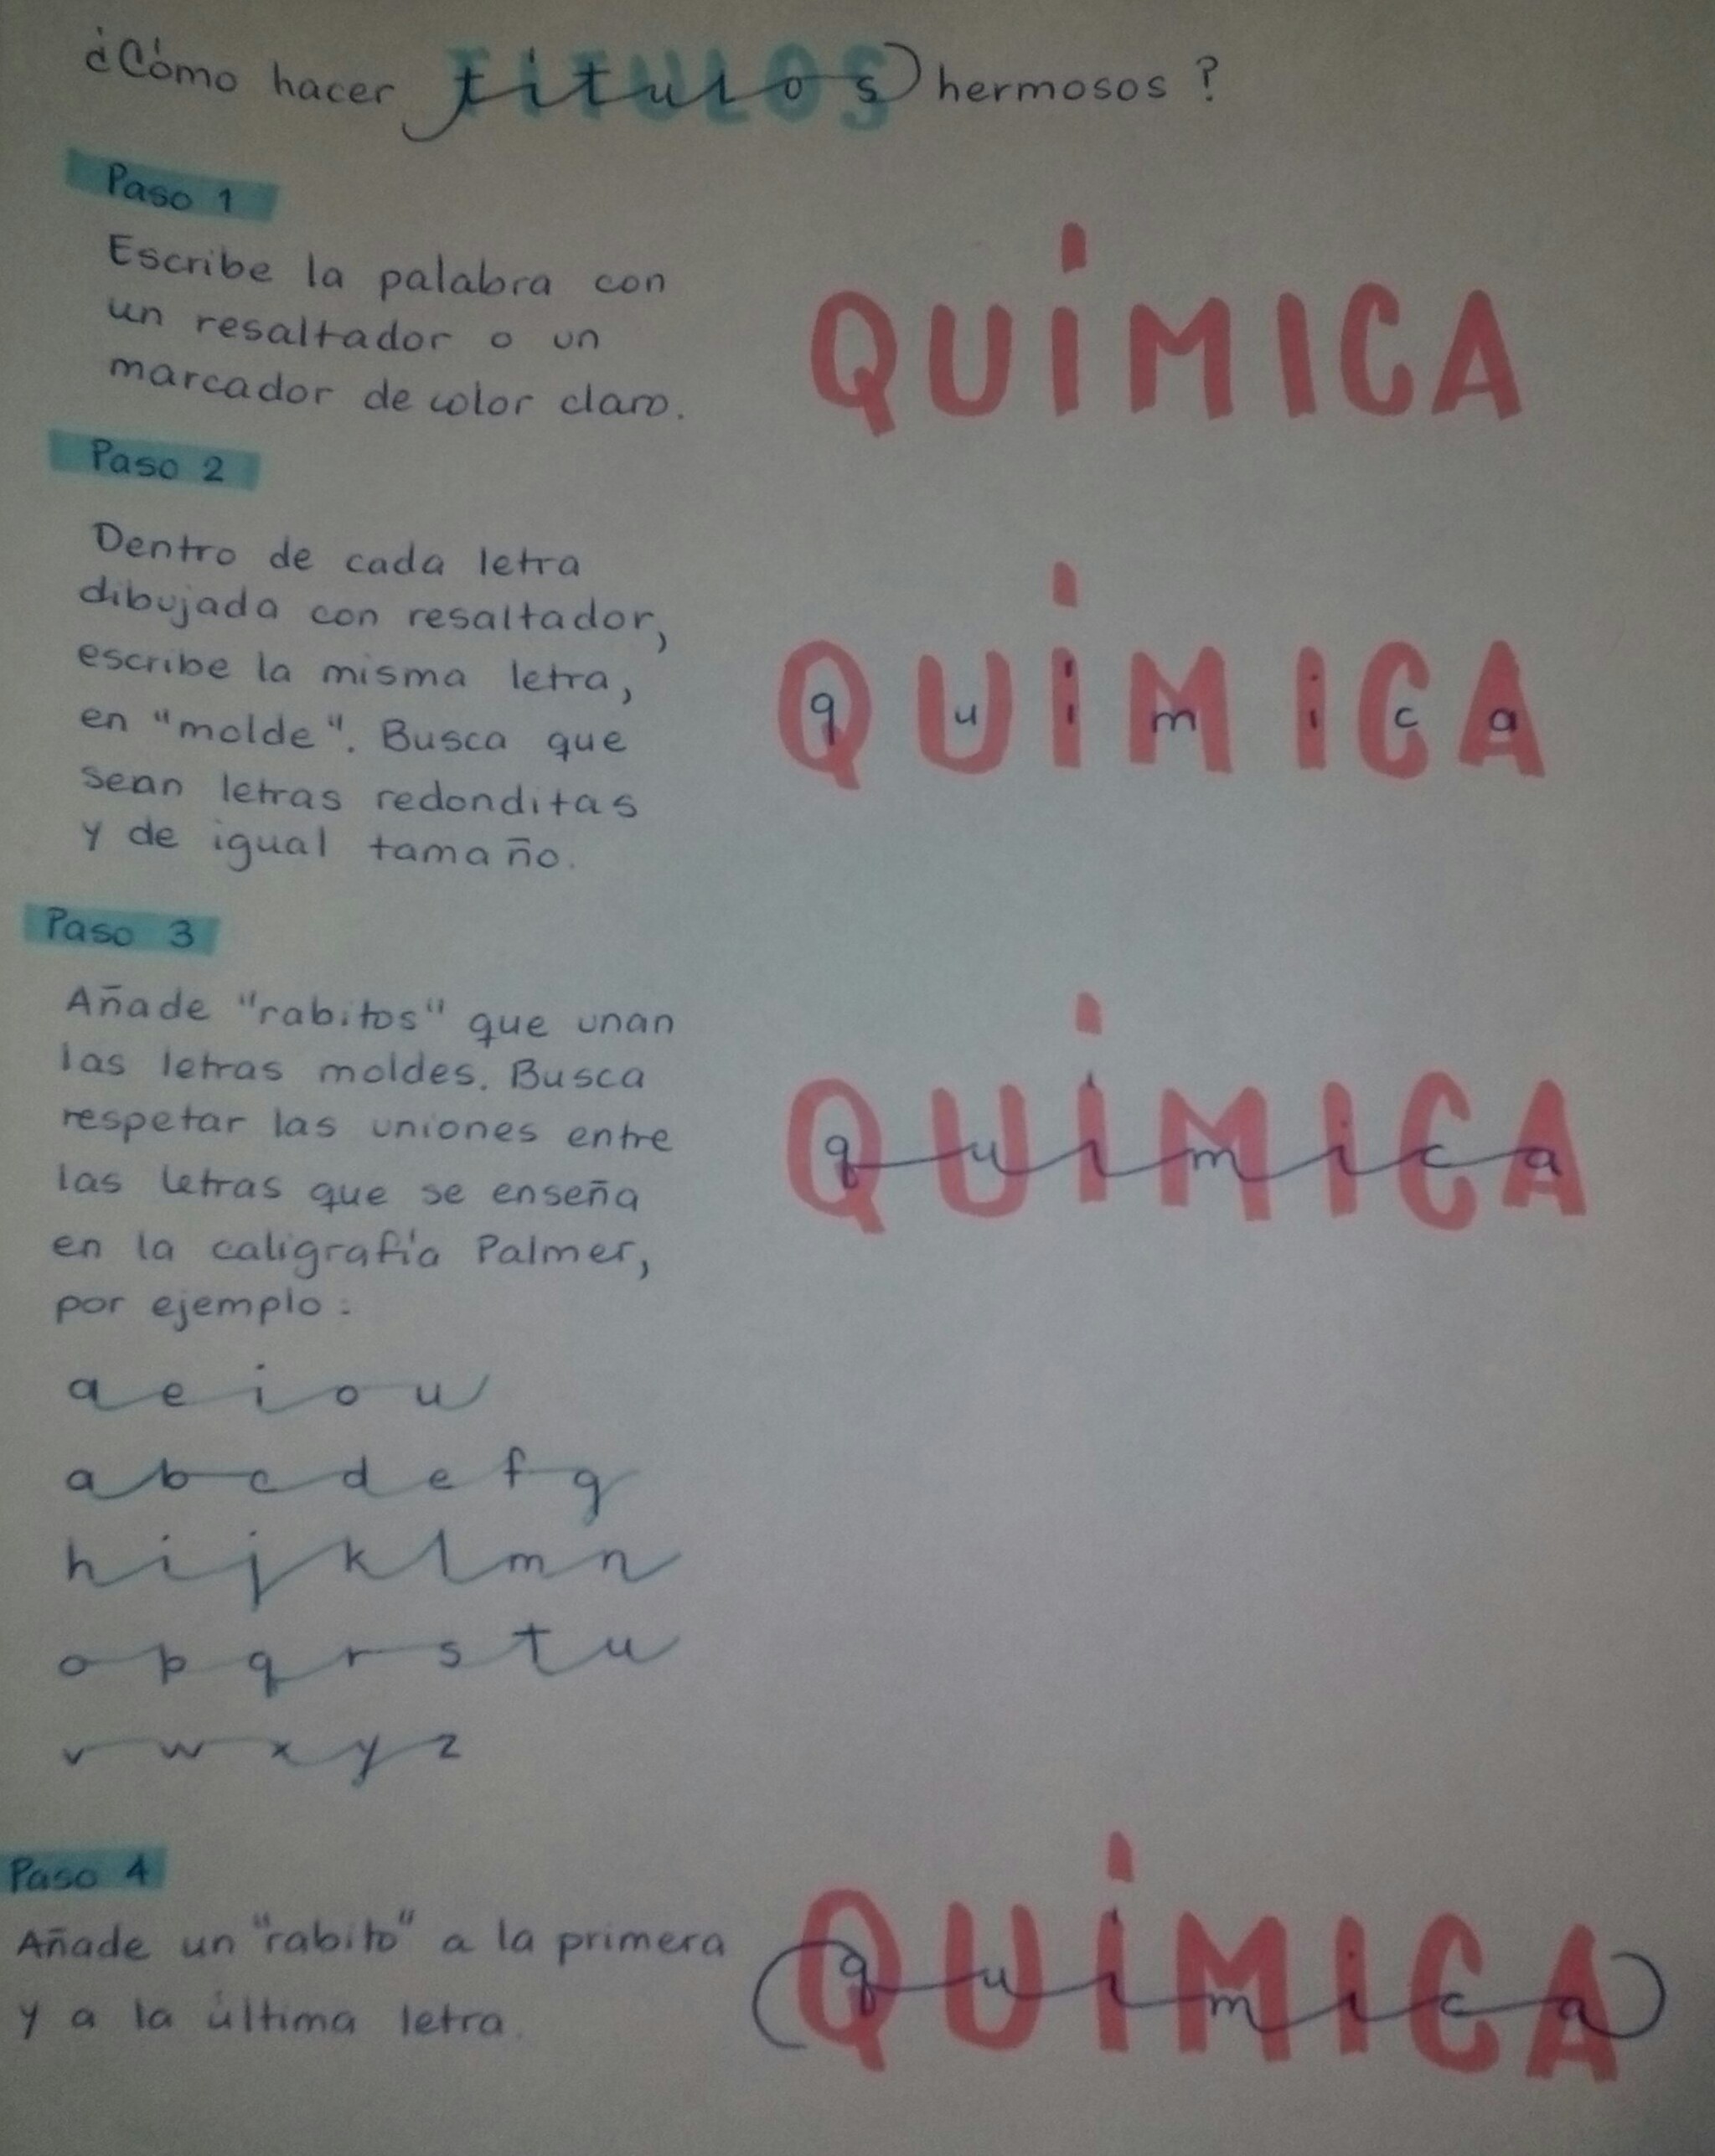 ¿Cómo hacer títulos hermosos?
TÍTULOS
Paso 1
Escribe la palabra con
un resaltador o un
marcador de color claro.
QUÍMICA
Paso 2
Dentro de cada letra
dibujada con resaltador,
escribe la misma letra,
en "molde". Busca que
sean letras redonditas
y de igual tamaño.
QUÍMICA
química
Paso 3
Añade "rabitos" que unan
las letras moldes. Busca
respetar las uniones entre
las letras que se enseña
en la caligrafía Palmer,
por ejemplo:
QUÍMICA
química
a e i o u
a b c d e f g
h i j k l m n
o p q r s t u
v w x y z
Paso 4
Añade un "rabito" a la primera
y a la última letra.
QUÍMICA
química